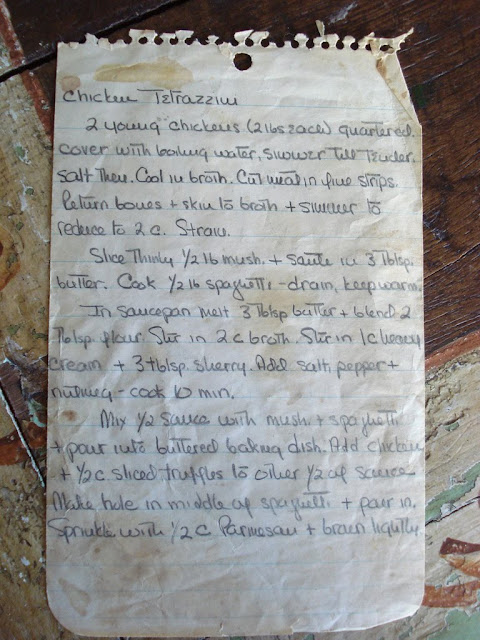 Chicken Tetrazzini
2 young chickens (2 lbs each) quartered
cover with boiling water, simmer till tender.
salt then. Cool in broth. Cut meat in fine strips.
Return bones + skin to broth + simmer to
reduce to 2 c. Strain.
Slice thinly 1/2 lb mush. + saute in 3 tblsp.
butter. Cook 1/2 lb spaghetti - drain, keep warm.
In saucepan melt 3 tblsp butter + blend 2
tblsp. flour. Stir in 2 c broth. Stir in 1 c heavy
cream + 3 tblsp. sherry. Add salt, pepper +
nutmeg - cook 10 min.
Mix 1/2 sauce with mush. + spaghetti
+ pour into buttered baking dish. Add chicken
+ 1/2 c. sliced truffles to other 1/2 of sauce.
Make hole in middle of spaghetti + pour in.
Sprinkle with 1/2 c Parmesan + brown lightly